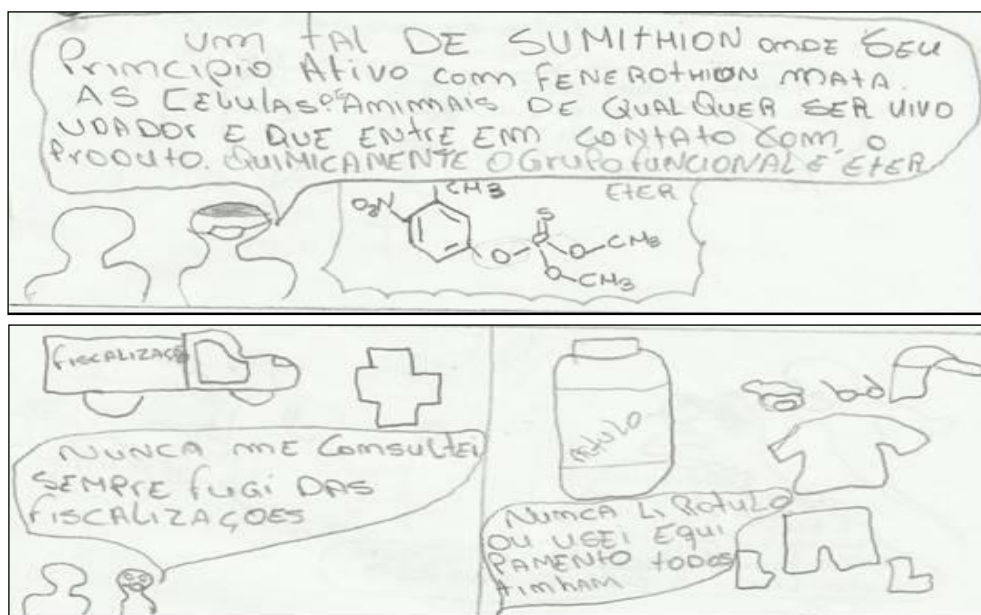 Um TAL DE SUMITHION onde SEU
Principio Ativo com FENEROTHION MATA.
AS CELULAS DE ANIMAIS DE QUALQUER SER VIVO
UDADOR E QUE ENTRE EM CONTATO COM O
PRODUTO. QUIMICAMENTE O Grupo funcional E ETER
ETER
CH3
O2N
S
O
P
O
CH3
O
CH3
FISCALIZAÇÃO
NUNCA ME Consultei
SEMPRE fugi DAS
FISCALIZAÇOES
ROTULO
NUNCA LI ROTULO
OU USEI EQUI
PAMENTO todos
tinham